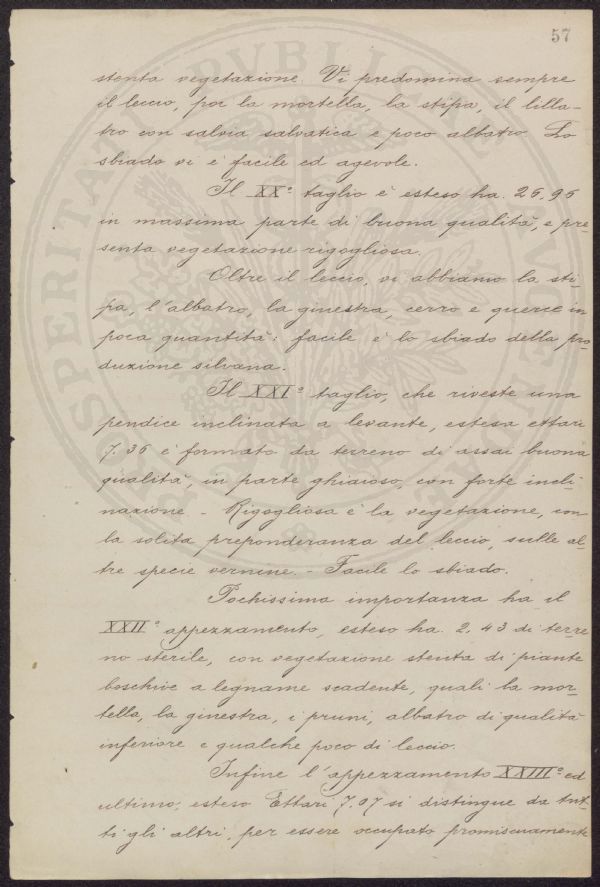 57
stenta vegetazione. Vi predomina sempre
il leccio, poi la mortella, la stipa, il lilla-
tro con salvia salvatica e poco albatro. Lo
sbiado vi è facile ed agevole.
Il XX° taglio è esteso ha. 26.96
in massima parte di buona qualità, e pre-
senta vegetazione rigogliosa.
Oltre il leccio, vi abbiamo la sti-
pa, l'albatro, la ginestra, cerro e querce in
poca quantità: facile è lo sbiado della pro-
duzione silvana.
Il XXI° taglio, che riveste una
pendice inclinata a levante, estesa ettari
7.36 è formato da terreno di assai buona
qualità, in parte ghiaioso, con forte incli-
nazione - Rigogliosa è la vegetazione, con
la solita preponderanza del leccio, sulle al-
tre specie vernine. - Facile lo sbiado.
Pochissima importanza ha il
XXII° appezzamento, esteso ha. 2.43 di terre
no sterile, con vegetazione stenta di piante
boschive a legname scadente, quali la mor-
tella, la ginestra, i pruni, albatro di qualità
inferiore e qualche poco di leccio.
Infine l'appezzamento XXIII° ed
ultimo, esteso Ettari 7.07 si distingue da tut-
ti gli altri, per essere occupato promiscuamente
PROSPERITATI PVBLICAE AVGENDAE